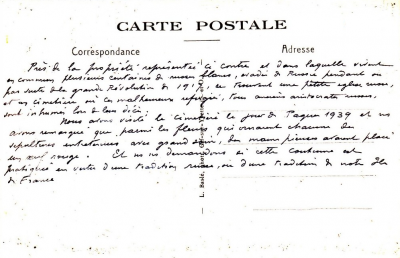 CARTE POSTALE
Correspondance
Adresse
Près de la propriété représentée ci contre et dans laquelle vivent
en commun plusieurs centaines de russes blancs, évadés de Russie pendant ou
par suite de la grande Révolution de 1917, se trouvent une petite église russe,
et un cimetière où ces malheureux réfugiés, tous anciens aristocrates russes,
sont inhumés lors de leur décès.
Nous avons visité le cimetière le jour de Pâques 1939 et
avons remarqué que parmi les fleurs qui ornaient chacune des
sépultures entretenues avec grand soin, des mains pieuses avaient placé
un œuf rouge. Et nous nous demandons si cette coutume est
pratiquée en vertu d'une tradition russe, ou d'une tradition de notre Ile
de France